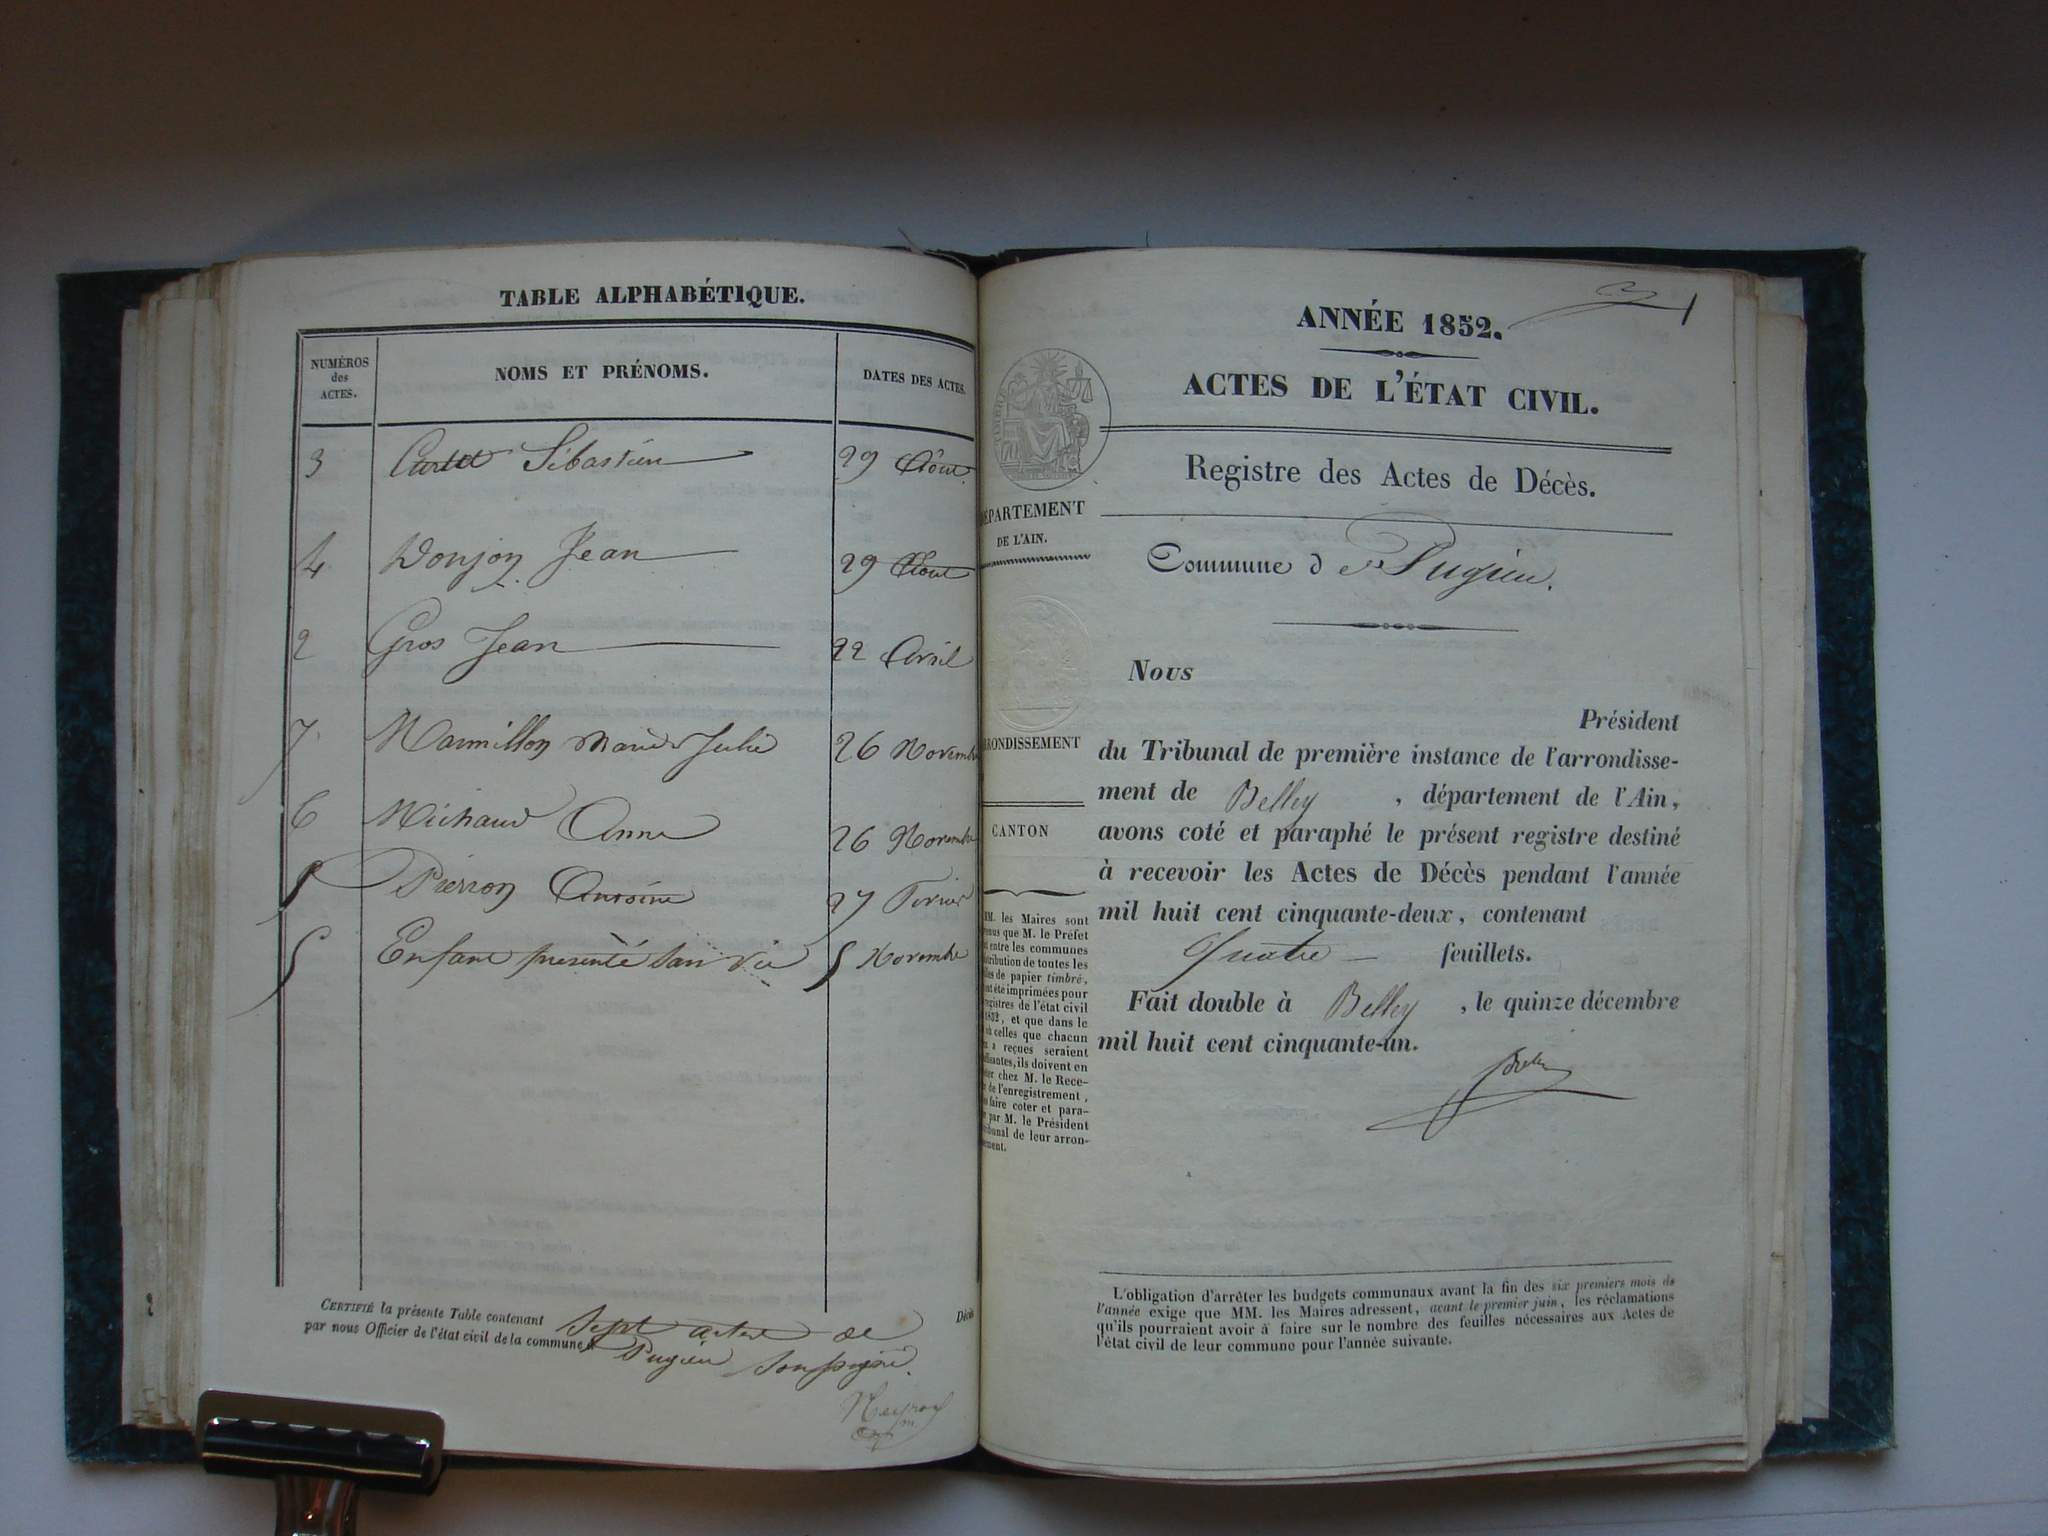 TABLE ALPHABÉTIQUE.
NUMÉROS
des
ACTES.
NOMS ET PRÉNOMS.
DATES DES ACTES.
3 Cartet Sébastien 29 Août
4 Donjon Jean 29 Août
2 Gros Jean 22 Avril
7 Marmillon Marie Julie 26 Novembre
6 Michaud Anne 26 Novembre
1 Pierron Antoine 27 Fevrier
5 Enfant présenté sans vie 5 Novembre
CERTIFIÉ la présente Table contenant Sept actes de Décès
par nous Officier de l'état civil de la commune de Pugieu Soussigné.
ANNÉE 1852.
1
ACTES DE L'ÉTAT CIVIL.
Registre des Actes de Décès.
DÉPARTEMENT
DE L'AIN.
Commune de Pugieu.
ARRONDISSEMENT
CANTON
MM. les Maires sont
que M. le Préfet
entre les communes
distribution de toutes les
de papier timbré,
ont été imprimées pour
registres de l'état civil
1852, et que dans le
où celles que chacun
a reçues seraient
ils doivent en
chez M. le Rece-
de l'enregistrement,
faire coter et para-
par M. le Président
tribunal de leur arron-
Nous
Président
du Tribunal de première instance de l'arrondisse-
ment de Belley, département de l'Ain,
avons coté et paraphé le présent registre destiné
à recevoir les Actes de Décès pendant l'année
mil huit cent cinquante-deux, contenant
Quatre feuillets.
Fait double à Belley, le quinze décembre
mil huit cent cinquante-un.
L'obligation d'arrêter les budgets communaux avant la fin des six premiers mois de
l'année exige que MM. les Maires adressent, avant le premier juin, les réclamations
qu'ils pourraient avoir à faire sur le nombre des feuilles nécessaires aux Actes de
l'état civil de leur commune pour l'année suivante.